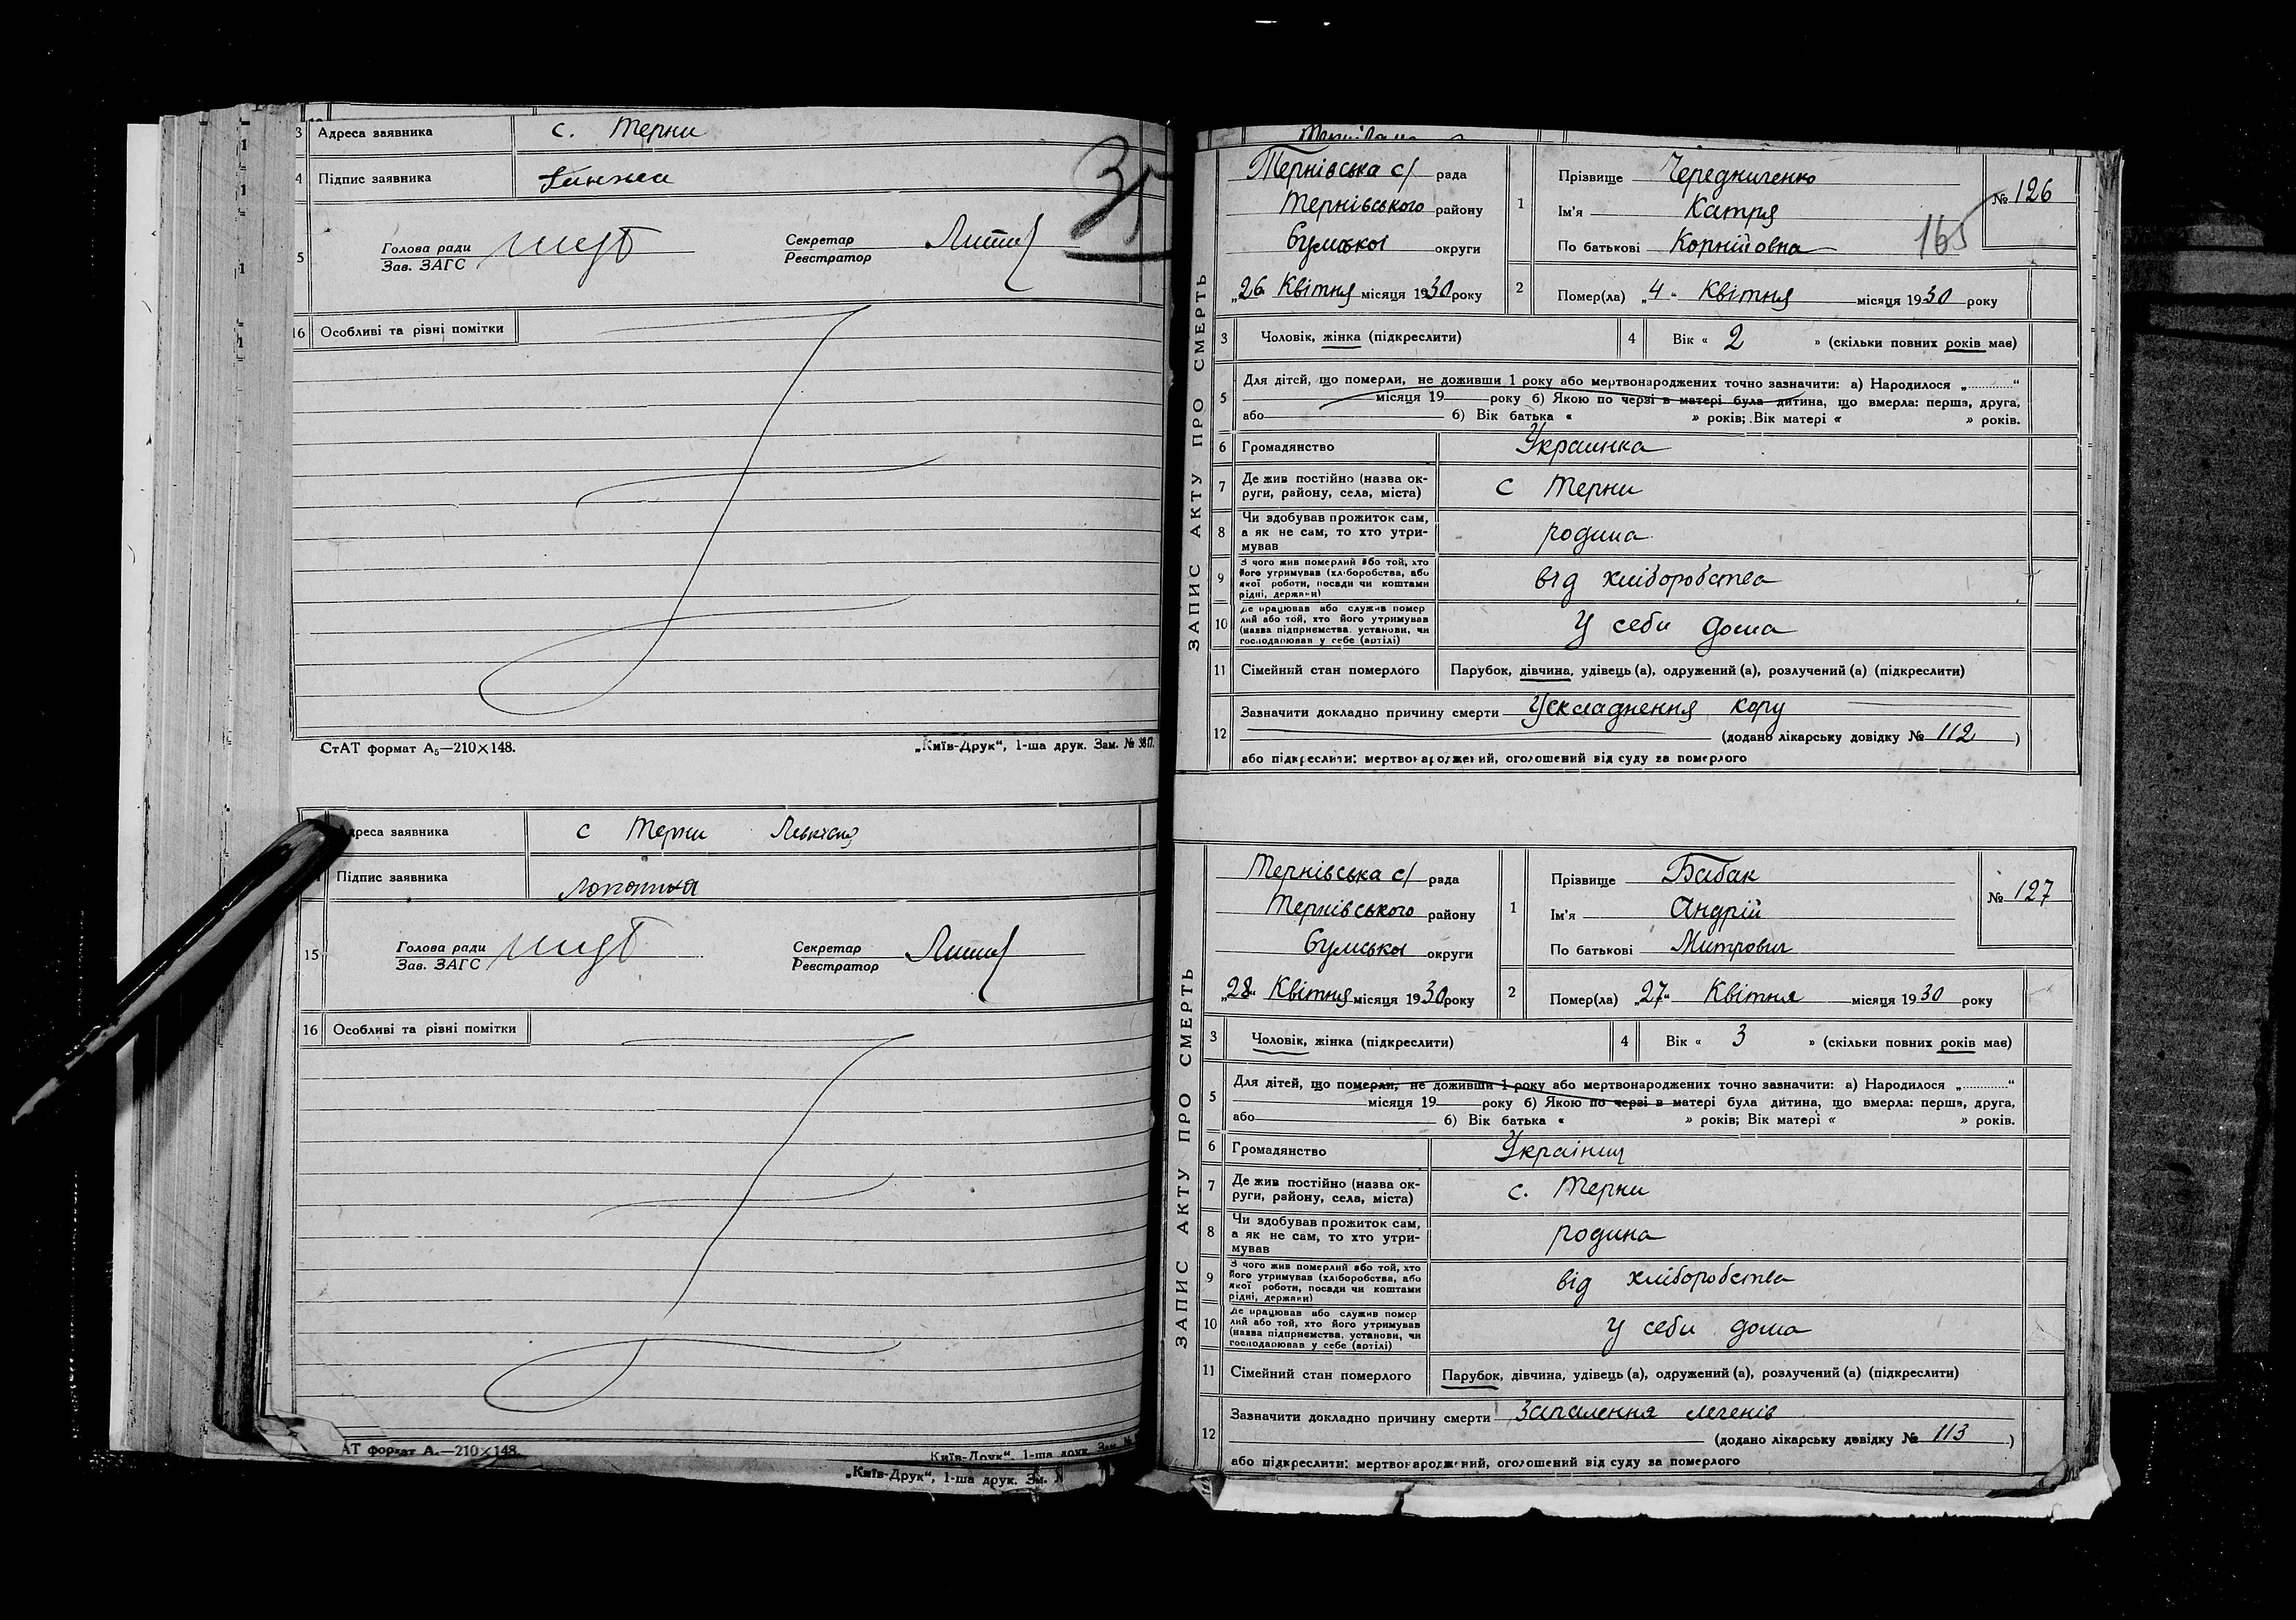 3 Адреса заявника с. Терни
4 Підпис заявника
35
5 Голова ради Секретар
Зав. ЗАГС Реєстратор
16 Особливі та різні помітки
СтАТ формат А₅—210×148. „Київ-Друк“, 1-ша друк. Зам. № 3817.
Адреса заявника с Терни
Підпис заявника
15 Голова ради Секретар
Зав. ЗАГС Реєстратор
16 Особливі та різні помітки
АТ формат А₅—210×148. Київ-Друк“, 1-ша друк. Зам.
„Київ-Друк“, 1-ша друк. Зм.
ЗАПИС АКТУ ПРО СМЕРТЬ
Тернівська с/ рада
Тернівського району
Сумської округи
„26 Квітня місяця 1930 року
1 Прізвище Чередниченко
Ім'я Катря
По батькові Корнійовна
№ 126
165
2 Помер(ла) „4“ Квітня місяця 1930 року
3 Чоловік, жінка (підкреслити) 4 Вік « 2 » (скільки повних років має)
5 Для дітей, що померли, не доживши 1 року або мертвонароджених точно зазначити: а) Народилося „..........“
місяця 19 року б) Якою по черзі в матері була дитина, що вмерла: перша, друга,
або б) Вік батька « » років; Вік матері « » років.
6 Громадянство Украинка
7 Де жив постійно (назва ок-
руги, району, села, міста) с Терни
8 Чи здобував прожиток сам,
а як не сам, то хто утри-
мував родина
9 З чого жив померлий або той, хто
його утримував (хліборобства, або
якої роботи, посади чи коштами
рідні, держави) від хліборобства
10 Де працював або служив помер
лий або той, хто його утримував
(назва підприємства, установи, чи
господарював у себе (артілі) у себи дома
11 Сімейний стан померлого Парубок, дівчина, удівець (а), одружений (а), розлучений (а) (підкреслити)
12 Зазначити докладно причину смерти Ускладнення кору
(додано лікарську довідку № 112 )
або підкреслити: мертвонароджений, оголошений від суду за померлого
ЗАПИС АКТУ ПРО СМЕРТЬ
Тернівська с/ рада
Тернівського району
Сумської округи
„28“ Квітня місяця 1930 року
1 Прізвище Бабак
Ім'я Андрій
По батькові Митрович
№ 127
2 Помер(ла) „27“ Квітня місяця 1930 року
3 Чоловік, жінка (підкреслити) 4 Вік « 3 » (скільки повних років має)
5 Для дітей, що померли, не доживши 1 року або мертвонароджених точно зазначити: а) Народилося „..........“
місяця 19 року б) Якою по черзі в матері була дитина, що вмерла: перша, друга,
або б) Вік батька « » років; Вік матері « » років.
6 Громадянство Українец
7 Де жив постійно (назва ок-
руги, району, села, міста) с. Терни
8 Чи здобував прожиток сам,
а як не сам, то хто утри-
мував родина
9 З чого жив померлий або той, хто
його утримував (хліборобства, або
якої роботи, посади чи коштами
рідні, держави) від хліборобства
10 Де працював або служив помер
лий або той, хто його утримував
(назва підприємства, установи, чи
господарював у себе (артілі) у себи дома
11 Сімейний стан померлого Парубок, дівчина, удівець (а), одружений (а), розлучений (а) (підкреслити)
12 Зазначити докладно причину смерти Запалення легенів
(додано лікарську довідку № 113 )
або підкреслити: мертвонароджений, оголошений від суду за померлого